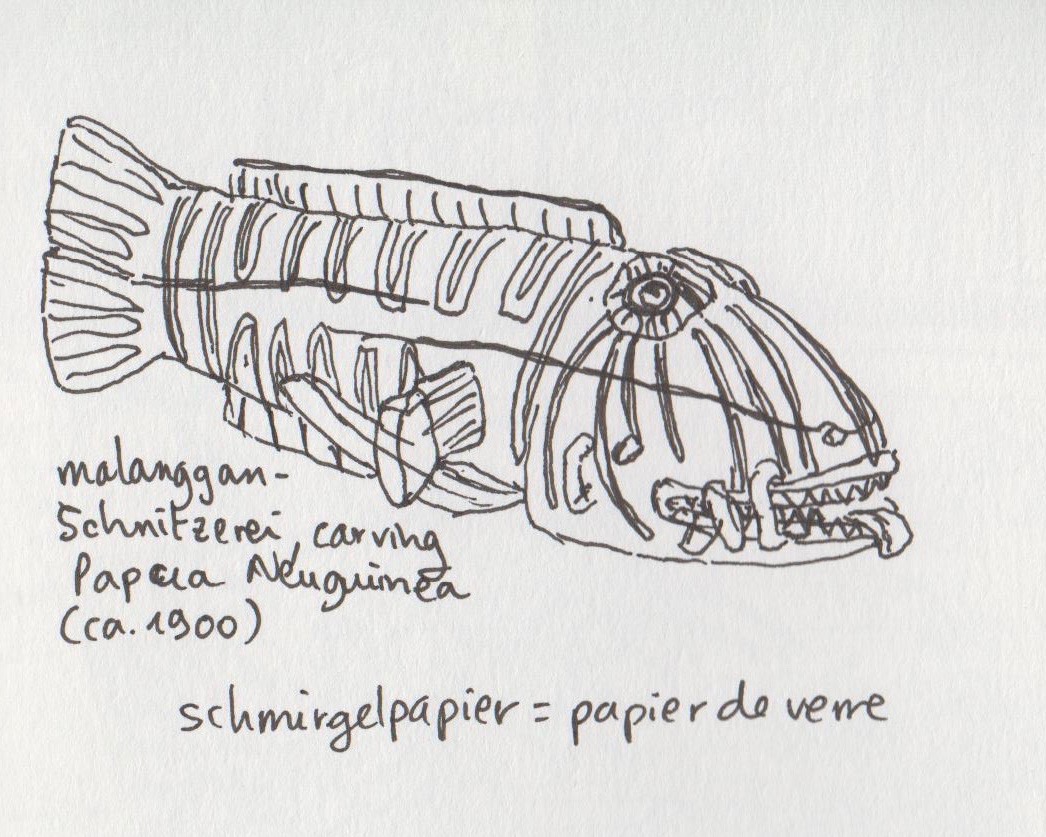 malanggan-
Schnitzerei, carving
Papua Neuguinea
(ca. 1900)
schmirgelpapier = papier de verre